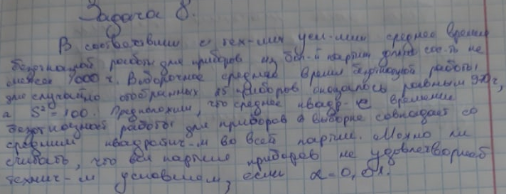 Задача 8.
В соответствии с тех-ми усл-ми среднее время
безотказной работы для приборов из бол-й партии должно сос-ть не
менее 1000 ч. Выборочное среднее время безотказной работы
для случайно отобранных 25 приборов оказалось равным 970 ч,
а S² = 100. Предположим, что среднее квадр. с времени
безотказной работы для приборов в выборке совпадает со
средним квадратич-м во всей партии. Можно ли
считать, что вся партия приборов не удовлетворяет
технич-м условиям, если α = 0,01.